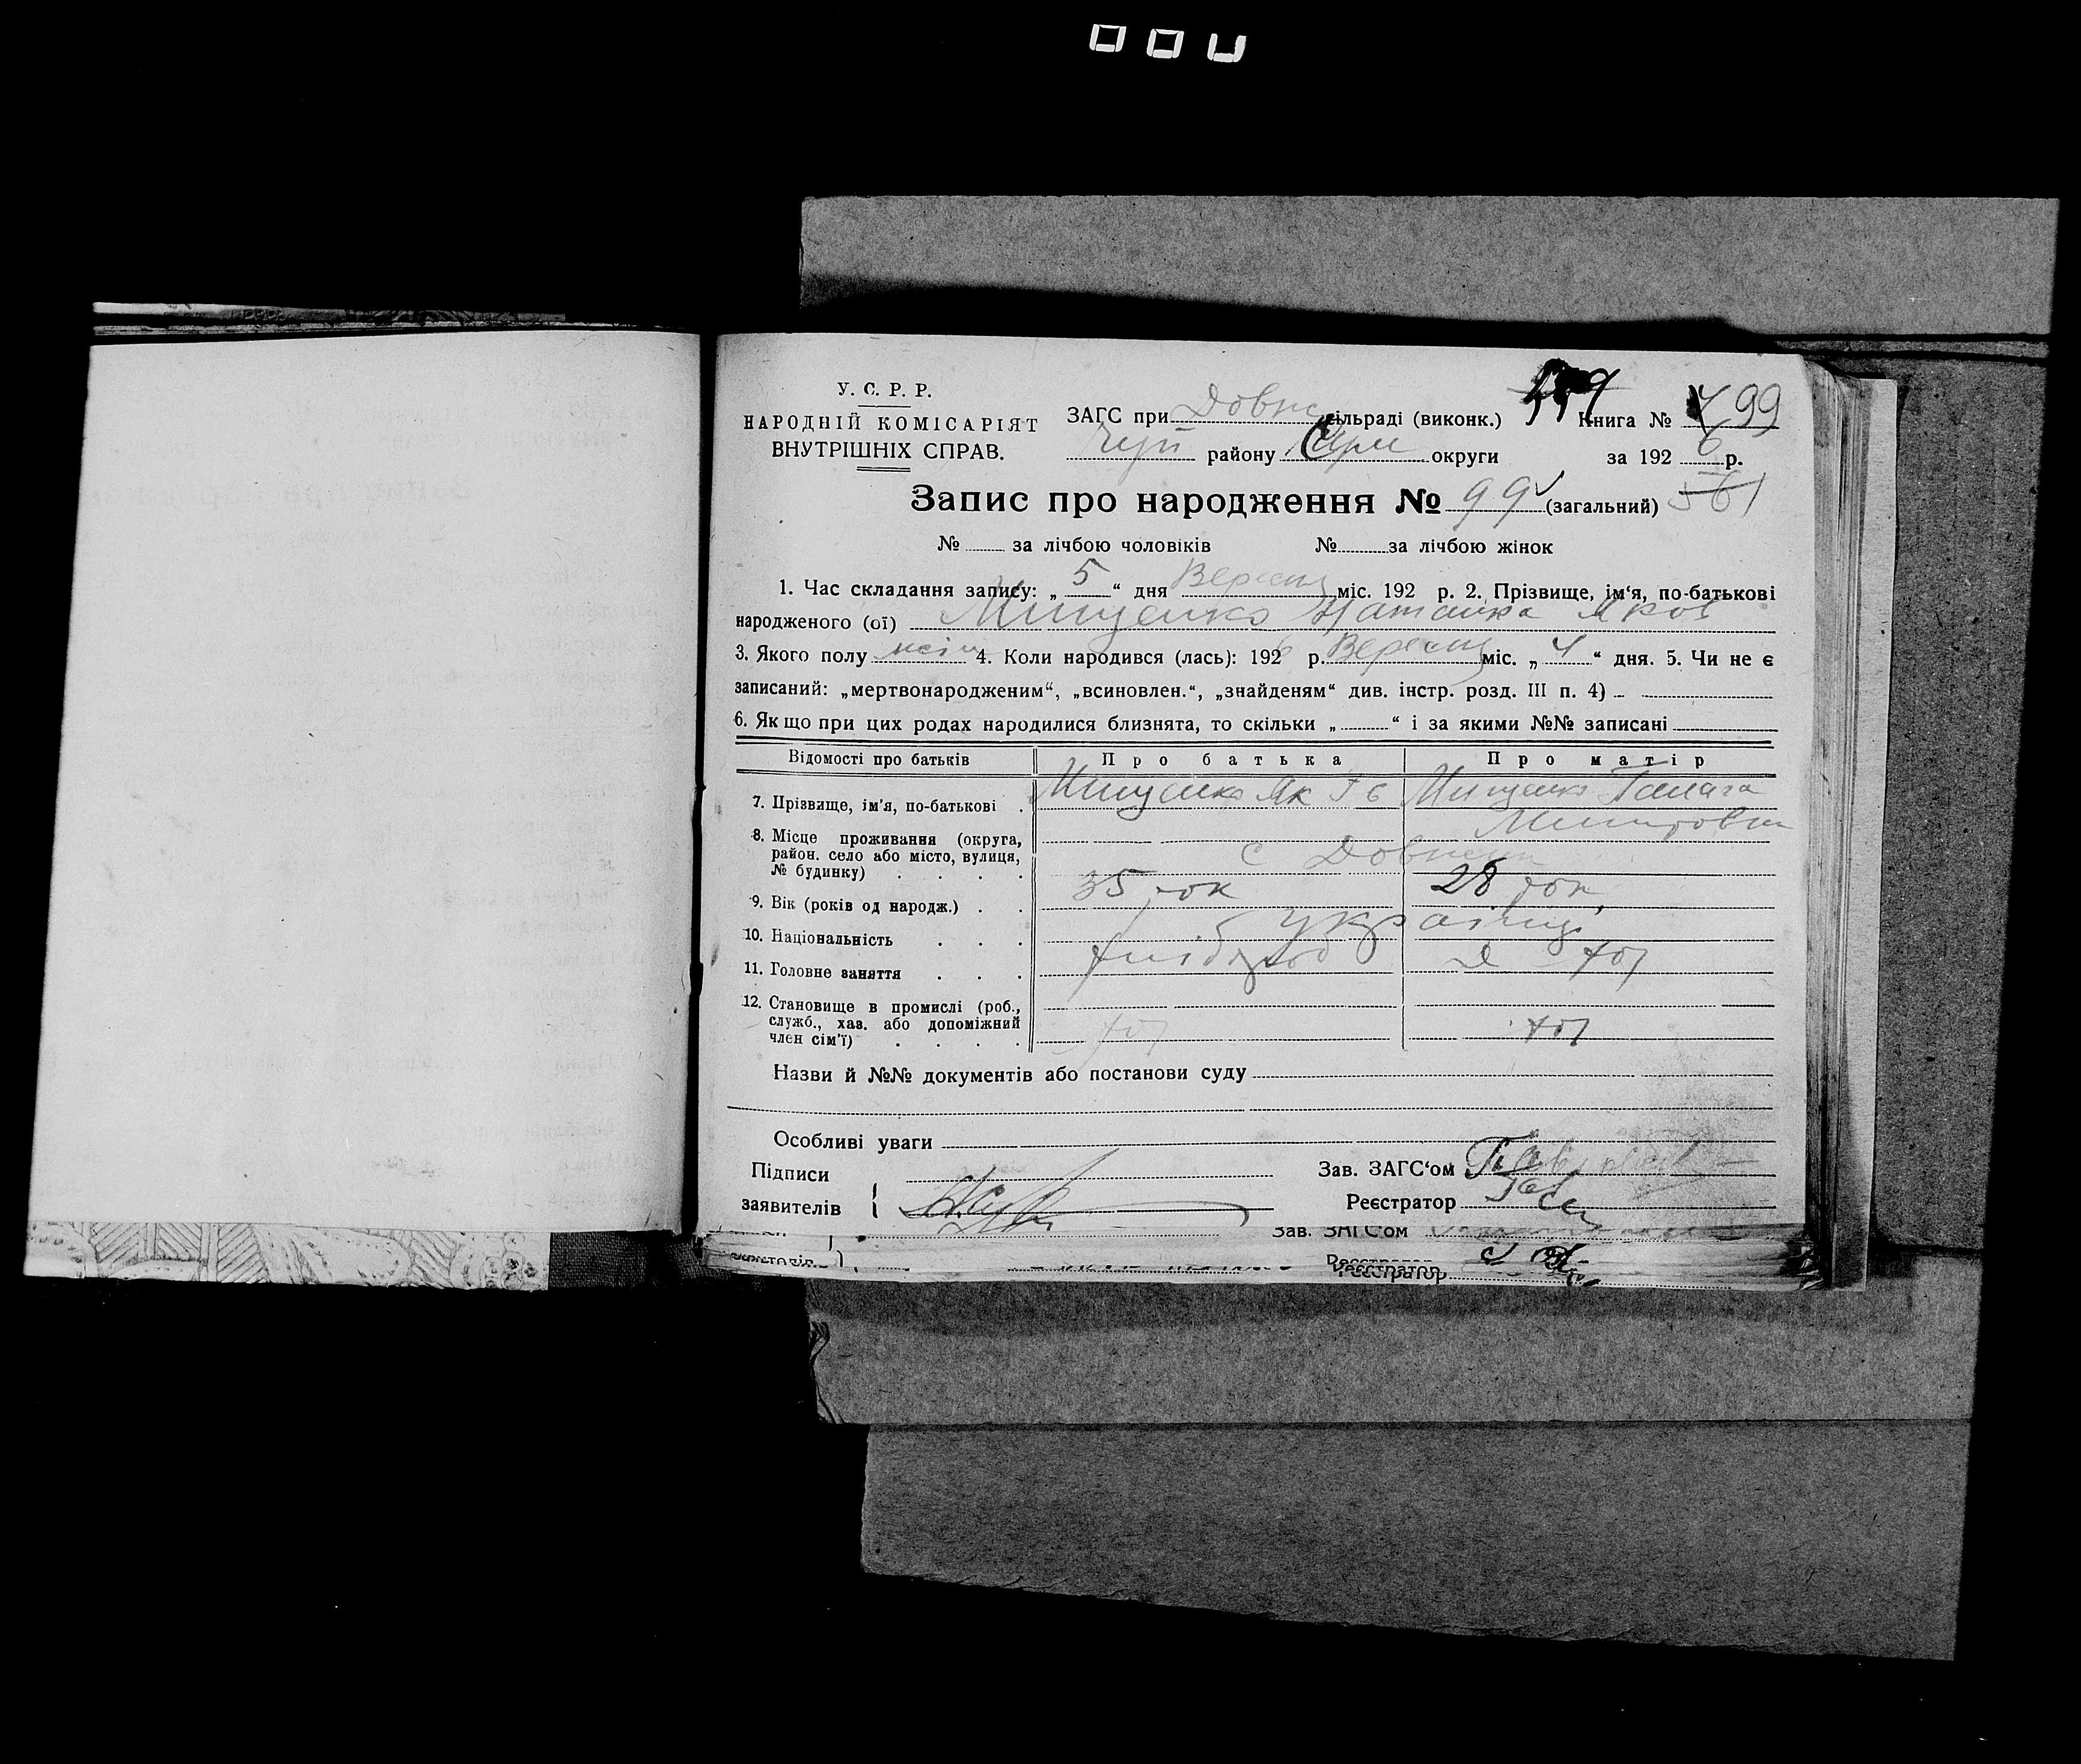 У. С. Р. Р.
НАРОДНІЙ КОМІСАРІЯТ
ВНУТРІШНІХ СПРАВ.
ЗАГС при сільраді (виконк.) Книга № 99
Чуп району Сум округи за 1926 р.
Запис про народження № 99 (загальний) 561
№ за лічбою чоловіків № за лічбою жінок
1. Час складання запису: „ 5 “ дня Вересня міс. 192 р. 2. Прізвище, ім‘я, по-батькові
народженого (ої) Мищенко Наталка Яков
3. Якого полу жін 4. Коли народився (лась): 1926 р. Вересня міс. „ 4 “ дня. 5. Чи не є
записаний: „мертвонародженим“, „всиновлен.“, „знайденям“ див. інстр. розд. III п. 4)
6. Якщо при цих родах народилися близнята, то скільки „ “ і за якими №№ записані
Відомості про батьків Про батька Про матір
7. Прізвище, ім‘я, по-батькові Мищенко Як Мищенко
8. Місце проживання (округа, район. село або місто, вулиця, № будинку) с
9. Вік (років од народж.) 35 рок 28 рок
10. Національність українці
11. Головне заняття хлібороб
12. Становище в промислі (роб., служб., хаз. або допоміжний член сім‘ї)
Назви й №№ документів або постанови суду
Особливі уваги
Підписи
заявителів
Зав. ЗАГС‘ом
Реєстратор
Зав. ЗАГС‘ом
Реєстратор